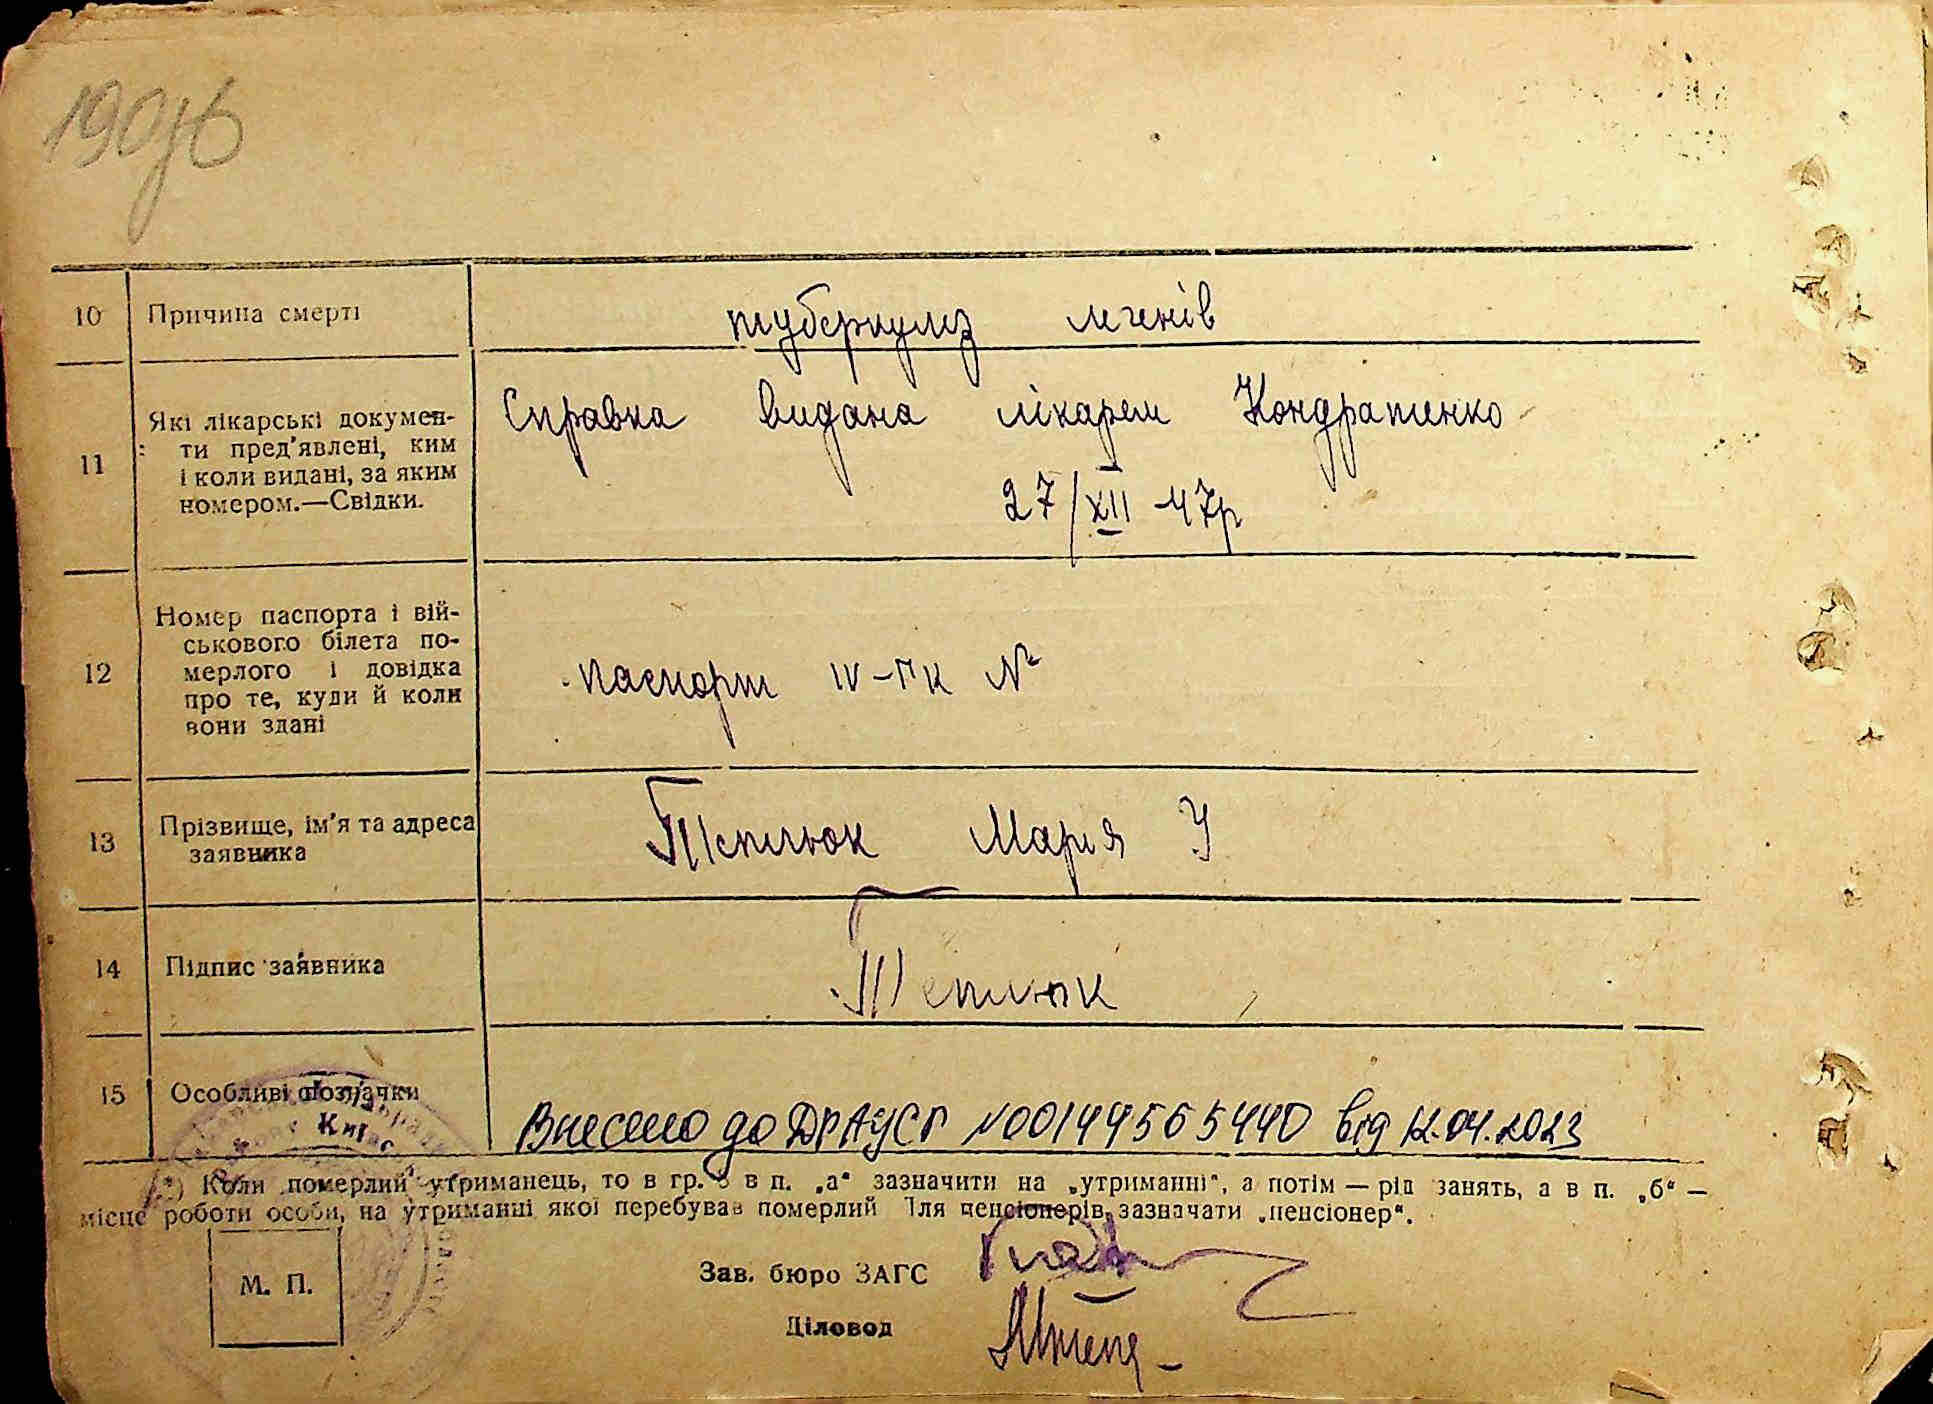 10 Причина смерті туберкулоз легенів
11 Які лікарські докумен-
ти пред'явлені, ким
і коли видані, за яким
номером.—Свідки.
Справка видана лікарем Кондратенко
27/XII 47р
12 Номер паспорта і вій-
ськового білета по-
мерлого і довідка
про те, куди й коли
вони здані
паспорт IV-ГК №
13 Прізвище, ім'я та адреса
заявника
Теплюк Мария У
14 Підпис заявника Теплюк
15 Особливі позначки
Внесено до ДРАЦСГ №00149565440 від 12.04.2023
*) Коли померлий утриманець, то в гр. 8 в п. „а“ зазначити на „утриманні“, а потім — рід занять, а в п. „б“ —
місце роботи особи, на утриманні якої перебував померлий Для пенсіонерів зазначати „пенсіонер“.
М. П.
Зав. бюро ЗАГС
Діловод